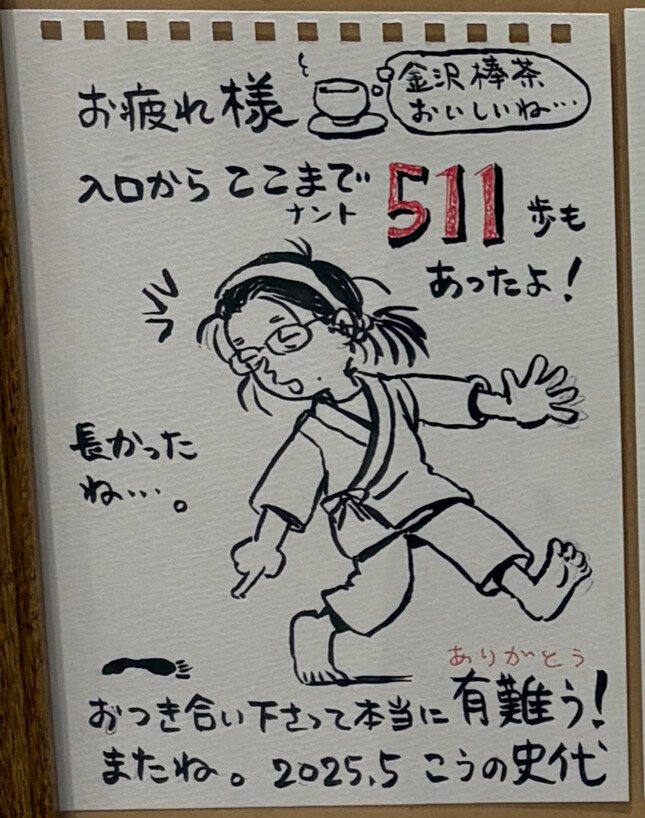 お疲れ様
金沢棒茶
おいしいね…
入口からここまで
ナント
511歩も
あったよ!
長かった
ね…。
ありがとう
おつき合い下さって本当に有難う!
またね。2025.5 こうの史代